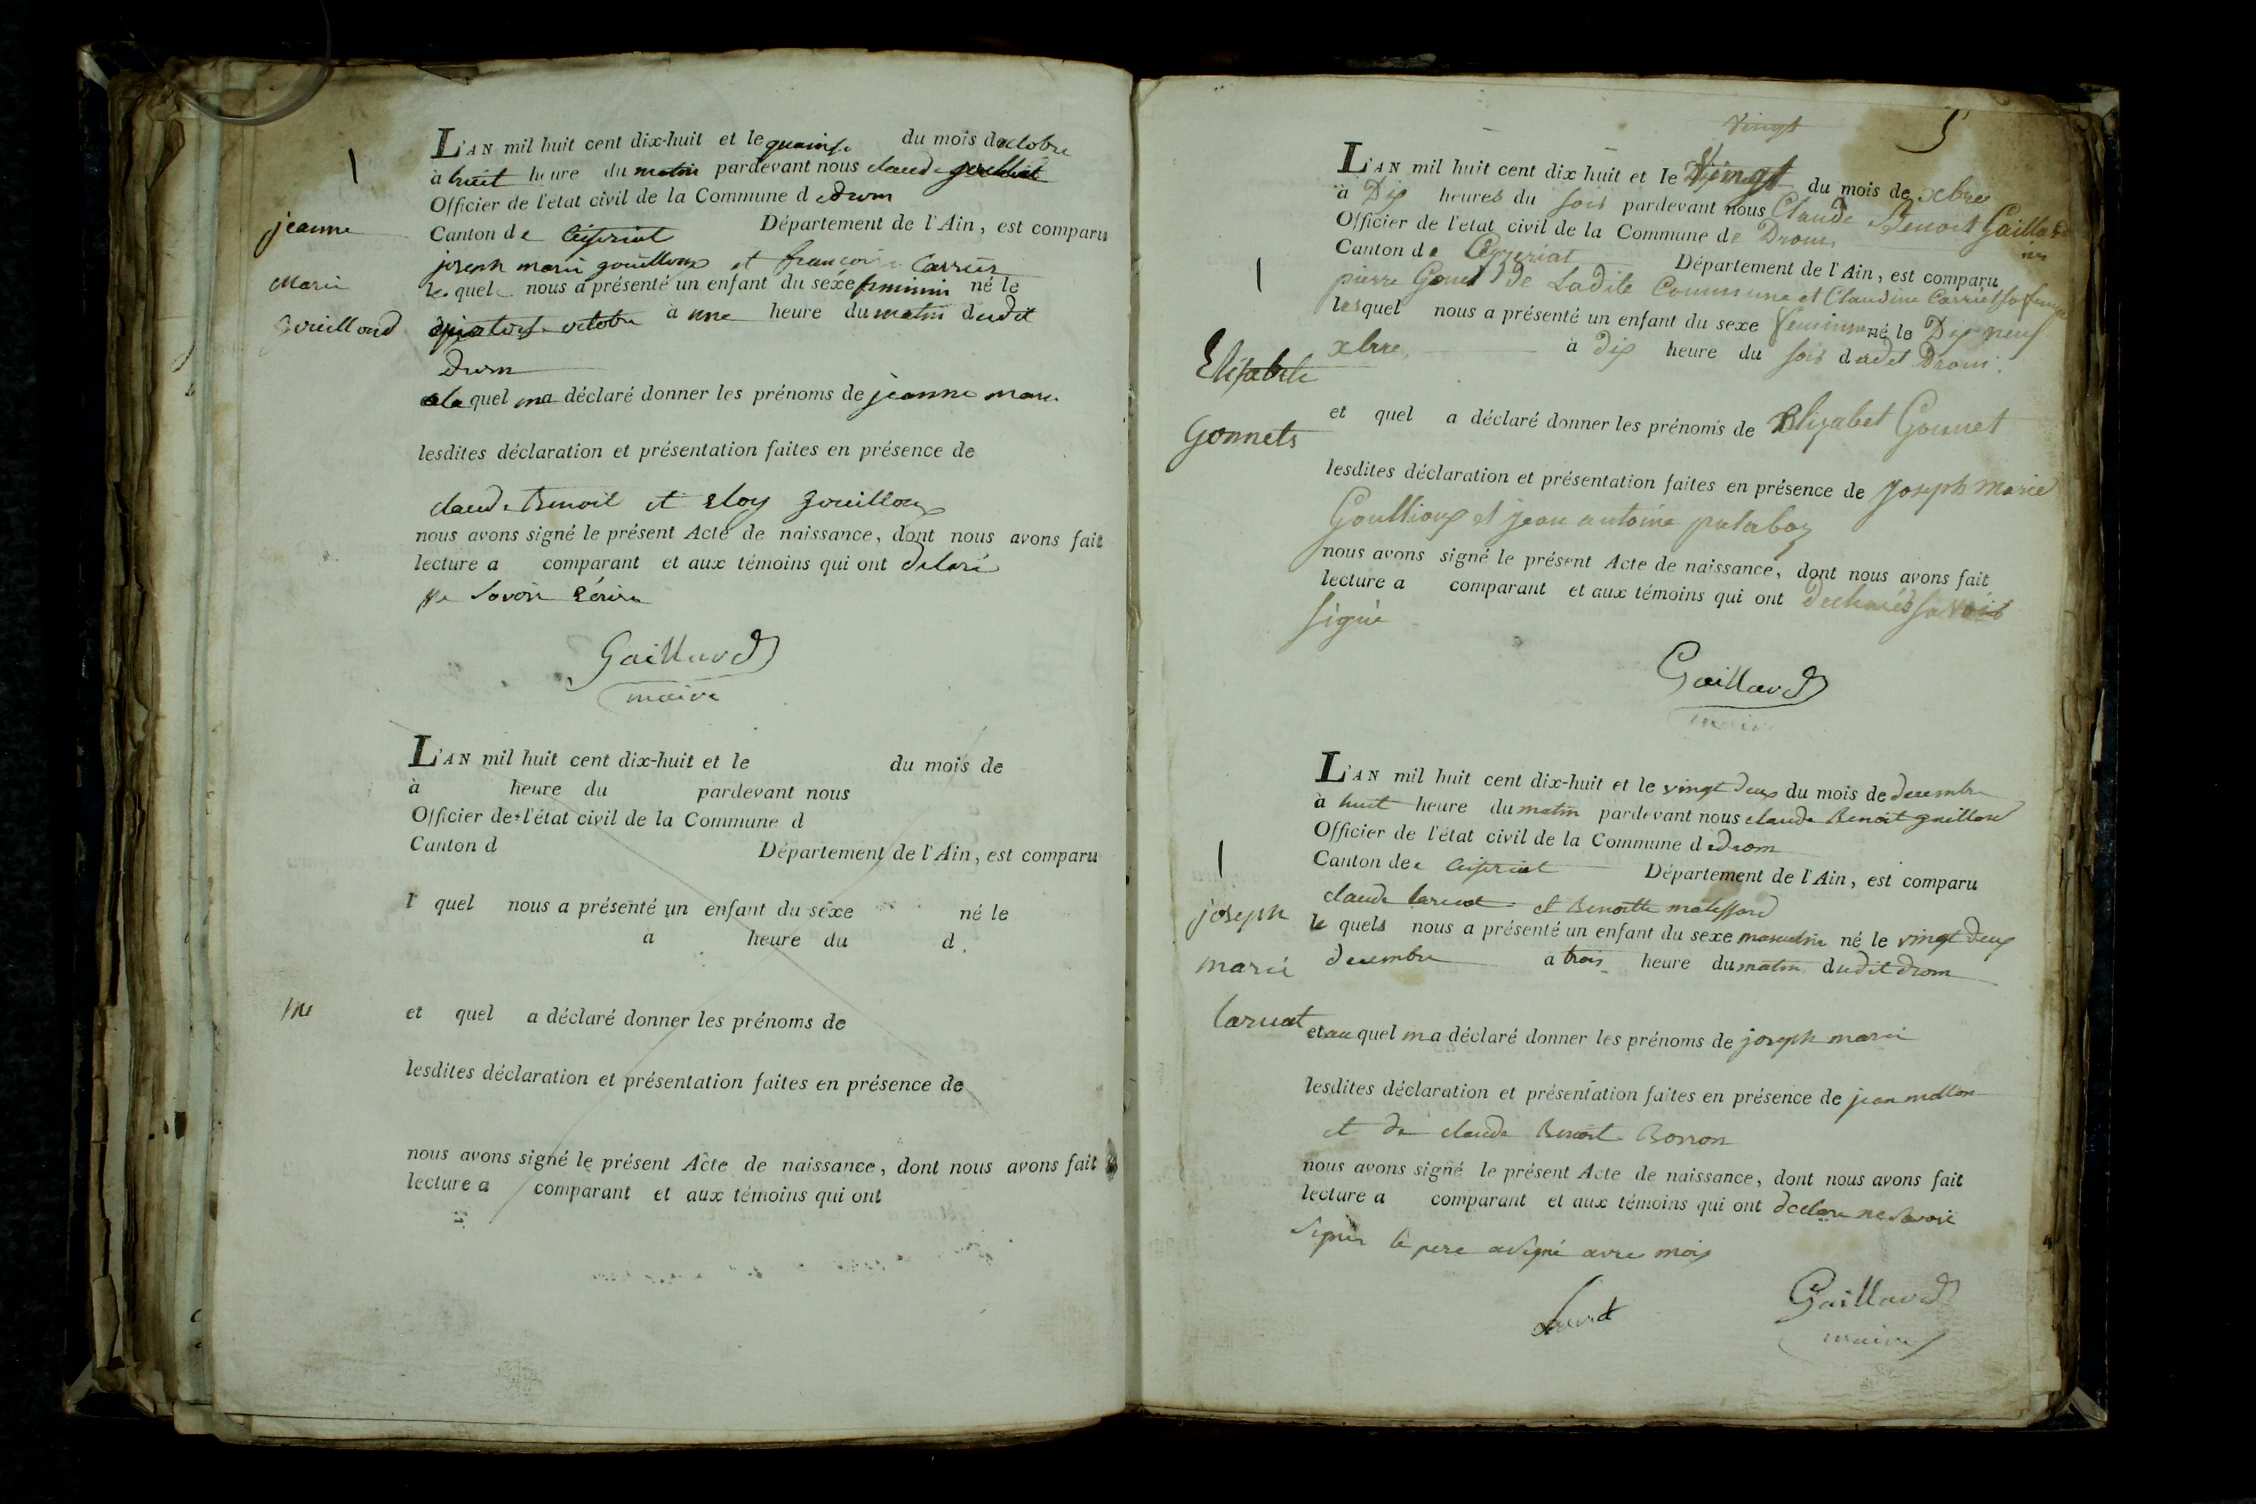 L'AN mil huit cent dix-huit et le quainse du mois doctobre
à huit heure du matin pardevant nous claude
Officier de l'état civil de la Commune d edrom
Canton de Ceiseriat Département de l'Ain, est comparu
joseph marie gouilloux et francoise Carrier
le quel nous a présenté un enfant du séxe feminin né le
octobre à une heure du matin dudit
drom
a la quel ma déclaré donner les prénoms de jeanne marie
lesdites déclaration et présentation faites en présence de
claude Benoit et Eloy gouilloux
nous avons signé le présent Acte de naissance, dont nous avons fait
lecture a comparant et aux témoins qui ont delaré
ne savoir Ecrire
Gaillard
maire
jeanne
Marie
Gouilloud
L'AN mil huit cent dix-huit et le du mois de
à heure du pardevant nous
Officier de l'état civil de la Commune d
Canton d Département de l'Ain, est comparu
l quel nous a présenté un enfant du séxe né le
a heure du d
et quel a déclaré donner les prénoms de
lesdites déclaration et présentation faites en présence de
nous avons signé le présent Acte de naissance, dont nous avons fait
lecture a comparant et aux témoins qui ont
5
Vingt
L'AN mil huit cent dix huit et le Vingt du mois de xbre
à Dix heures du soir pardevant nous Claude Benoit Gaillard
Officier de l'état civil de la Commune de Drom
Canton de Ceyzeriat Département de l'Ain, est comparu
pierre Gonet de Ladite Commune et Claudine Carriet sa femme
lesquel nous a présenté un enfant du sexe feminin né le Dix neuf
xbre à dix heure du soir dudit Drom
et quel a déclaré donner les prénoms de Elizabet Gonnet
lesdites déclaration et présentation faites en présence de Joseph Marie
Goullioux et jean antoine
nous avons signé le présent Acte de naissance, dont nous avons fait
lecture a comparant et aux témoins qui ont
signé
Gaillard
maire
Elisabete
Gonnets
L'AN mil huit cent dix-huit et le vingt deux du mois de decembre
à huit heure du matin pardevant nous claude Benoit gaillard
Officier de l'état civil de la Commune d edrom
Canton de Ceiseriat Département de l'Ain, est comparu
claude laruat et Benoitte
le quels nous a présenté un enfant du sexe masculin né le vingt deux
decembre à trois heure du matin dudit drom
et au quel ma déclaré donner les prénoms de joseph marie
lesdites déclaration et présentation faites en présence de jean
et de claude Benoit Borron
nous avons signé le présent Acte de naissance, dont nous avons fait
lecture a comparant et aux témoins qui ont declare ne savoir
signer le pere a signé avec mois
Gaillard
maire
joseph
marie
laruat